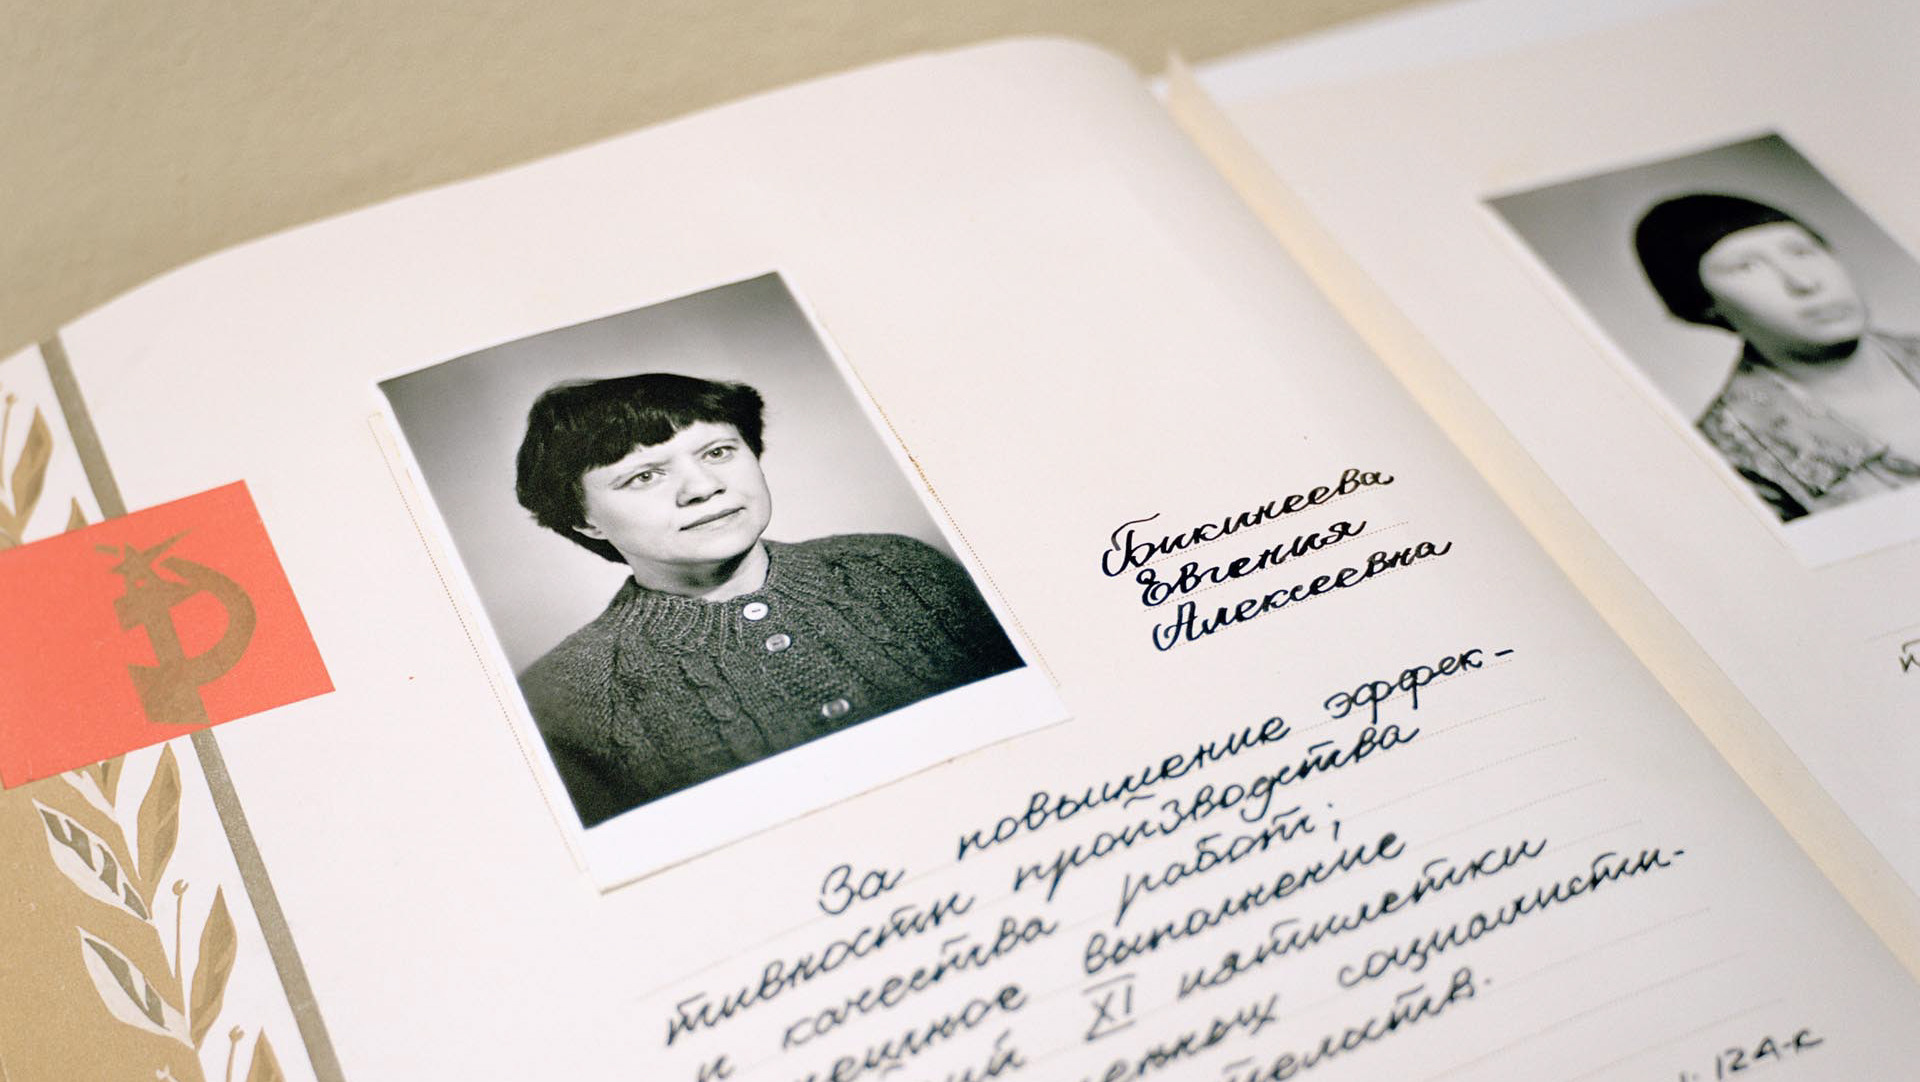 Бикинеева
Евгения
Алексеевна
За повышение эффек-
тивности производства
и качества работ;
выполнение
XI пятилетки
социалисти-
12А-к